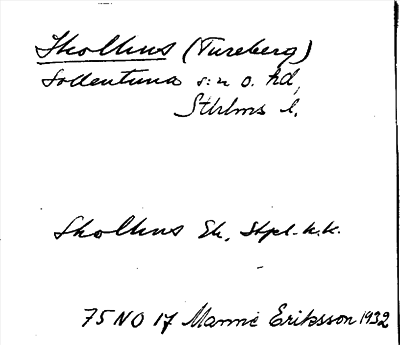 Skollhus (Tureberg)
Sollentuna s:n o. hd,
Sthlms l.
Skollhus Ek. Stpl. k.k.
75 NO 17 Manne Eriksson 1932